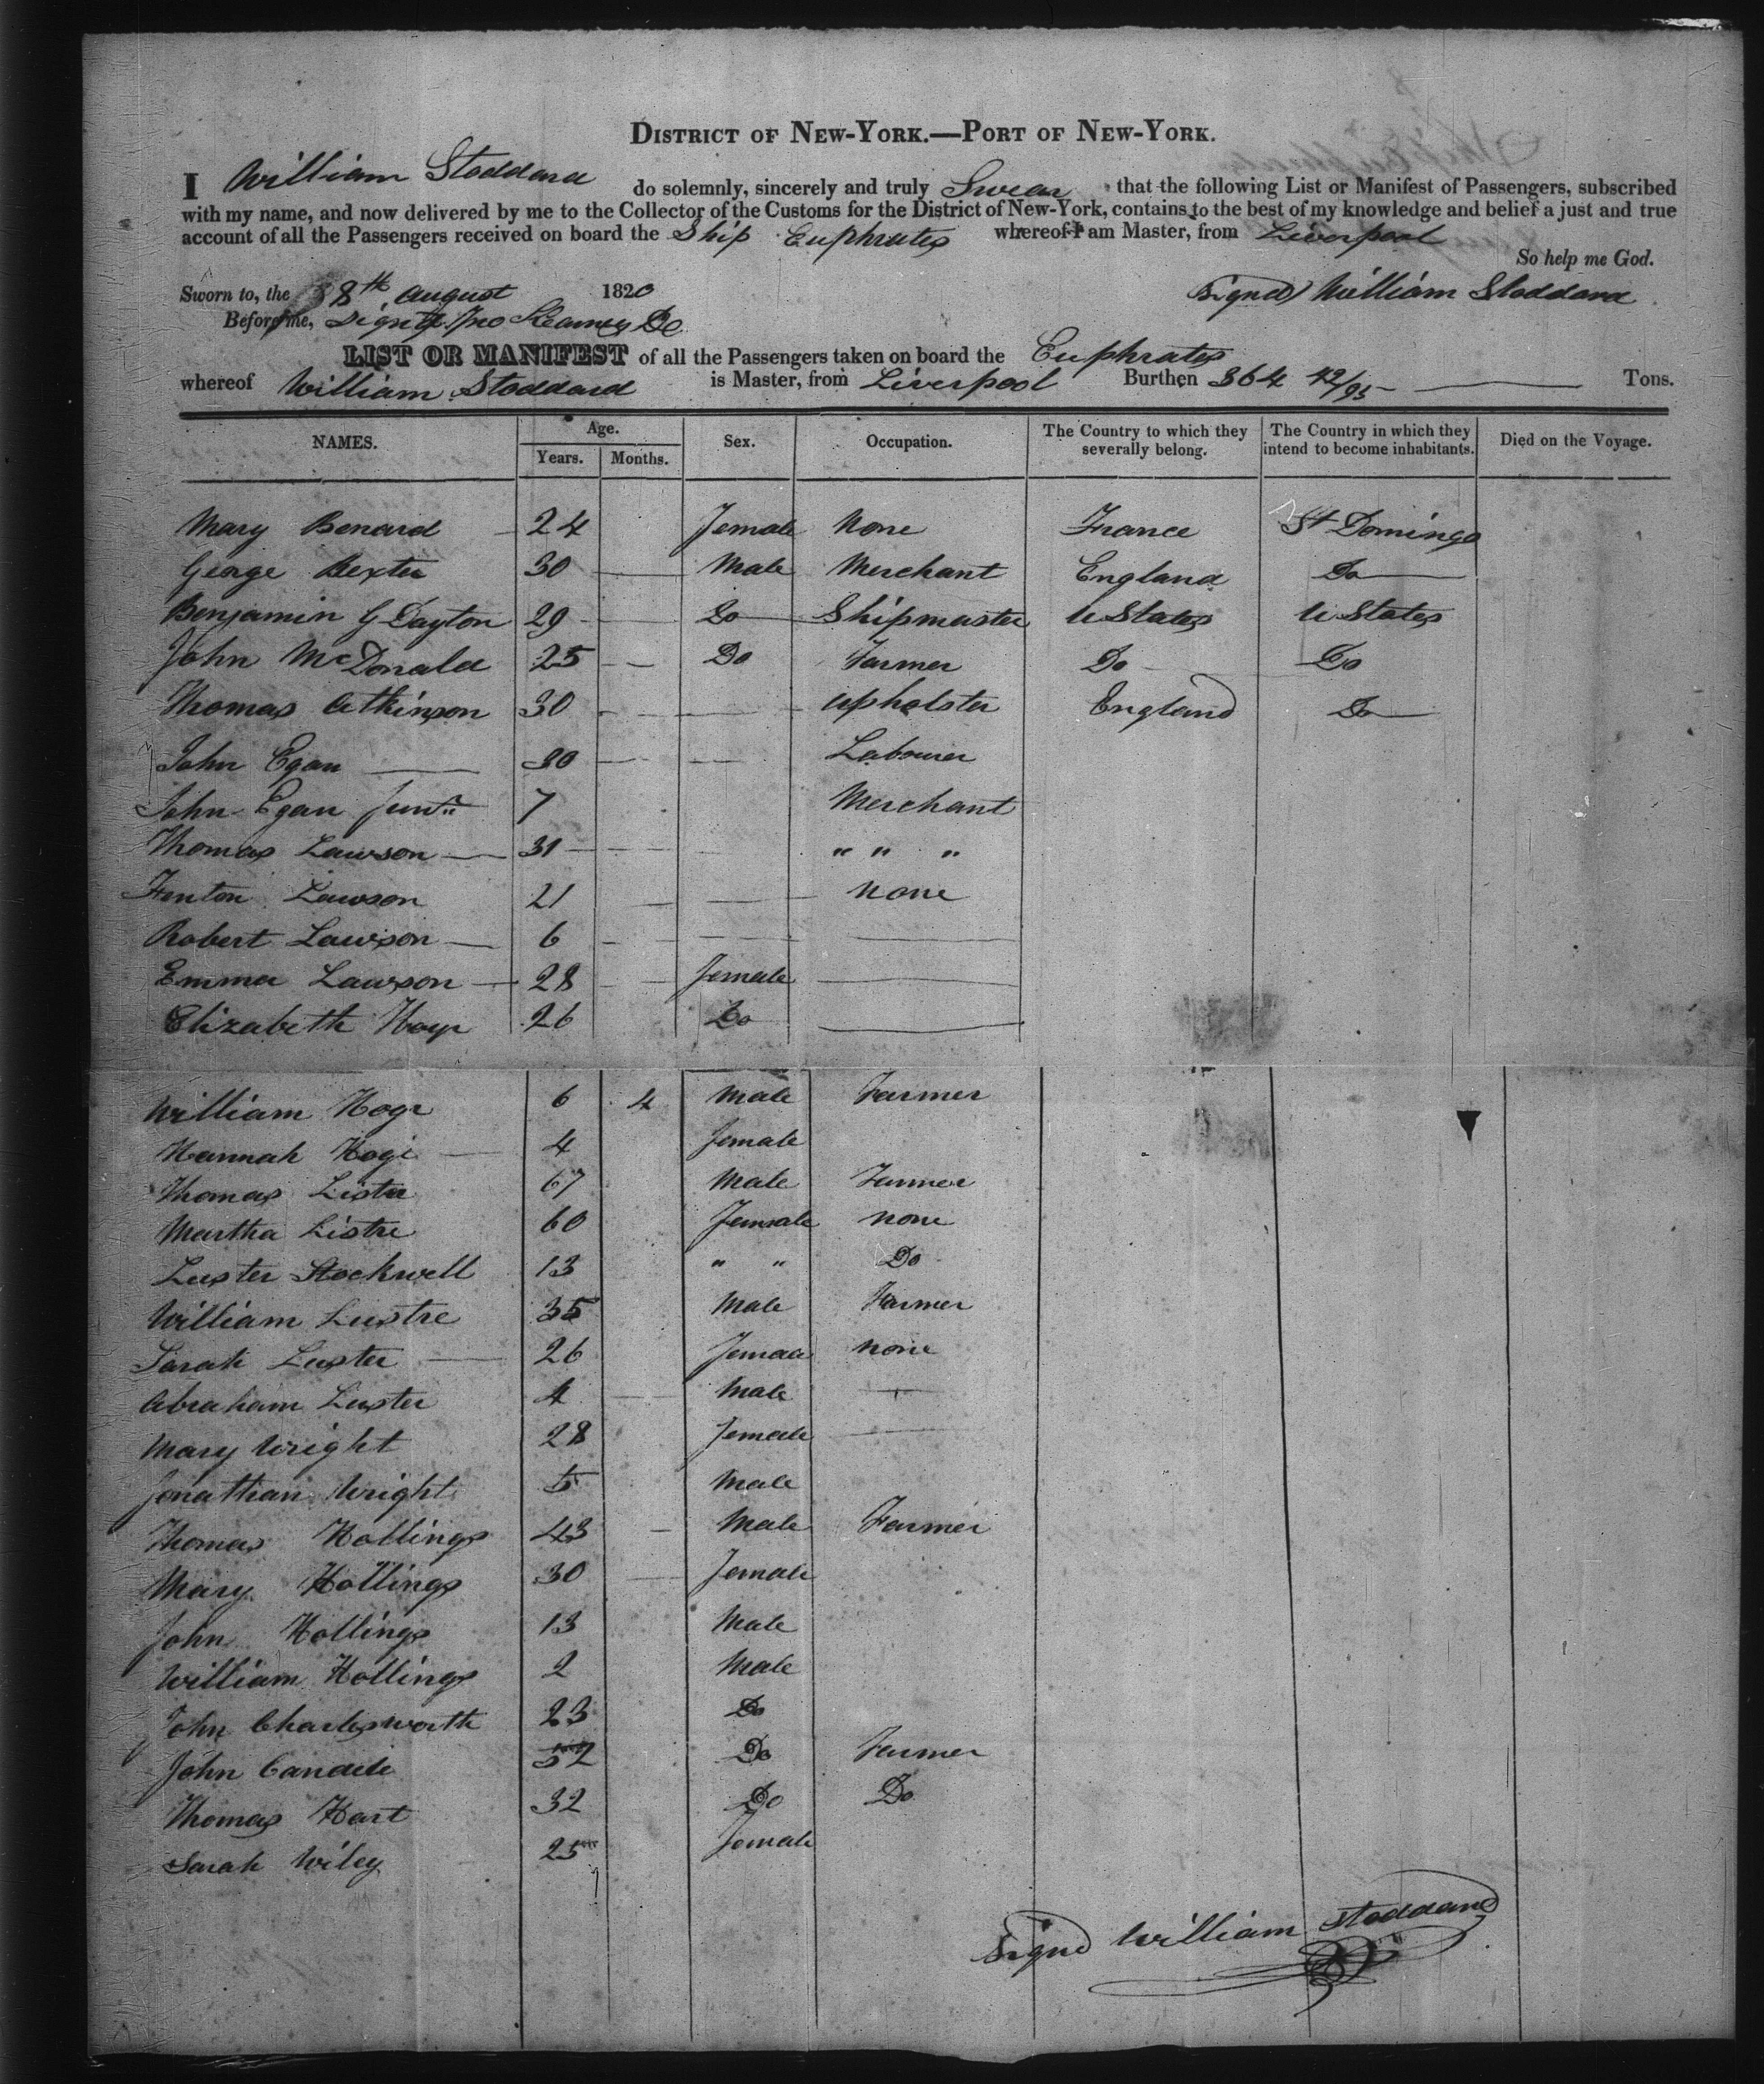 DISTRICT OF NEW-YORK.—PORT OF NEW-YORK.
I William Stoddard do solemnly, sincerely and truly Swear that the following List or Manifest of Passengers, subscribed
with my name, and now delivered by me to the Collector of the Customs for the District of New-York, contains to the best of my knowledge and belief a just and true
account of all the Passengers received on board the Ship Euphrates whereof I am Master, from Liverpool
So help me God.
Sworn to, the 8th August 1820 Signed William Stoddard
Before me, Signed Jno
LIST OR MANIFEST of all the Passengers taken on board the Euphrates
whereof William Stoddard is Master, from Liverpool Burthen 364 42/95 Tons.
NAMES. Age. Years. Months. Sex. Occupation. The Country to which they severally belong. The Country in which they intend to become inhabitants. Died on the Voyage.
Mary Benard 24 Female None France St Domingo
George Dexter 30 Male Merchant England Do
Benjamin G Dayton 29 Do Shipmaster U States U States
John McDonald 25 Do Farmer Do Do
Thomas Atkinson 30 Upholster England Do
John Egan 30 Labourer
John Egan Junr 7 Merchant
Thomas Lawson 31 " " "
Fenton Lawson 21 None
Robert Lawson 6
Emma Lawson 28 Female
Elizabeth 26 Do
William 6 4 Male Farmer
Hannah 4 Female
Thomas Lister 67 Male Farmer
Martha Listre 60 Female None
Luster Stockwell 13 " " Do
William Lustre 35 Male Farmer
Sarah Luster 26 None
Abraham Luster 4 Male
Mary Wright 28 Female
Jonathan Wright 5 Male
Thomas Hollings 43 Male Farmer
Mary Hollings 30 Female
John Hollings 13 Male
William Hollings 2 Male
John Charlesworth 23 Do
John 52 Do Farmer
Thomas Hart 32 Do Do
Sarah Wiley 25 Female
Signd William Stoddard